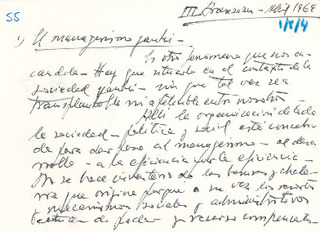 55
III Granzau - Abril 1968
1/5/4
1) El managerismo yanki -
Es otro fenómeno que nos en-
candila - Hay que situarlo en el contexto de la
sociedad yanki - sin que tal vez sea
transplantable ni aplicable entre nosotros -
Allí la organización de toda
la sociedad - política y social está
para dar paso al managerismo - al desa-
rrollo - a la eficiencia por la eficiencia -
No se hace inventario de las basuras y chata-
rra que origina porque a su vez los
mecanismos sociales y administrativos
de poder y recursos compensato-